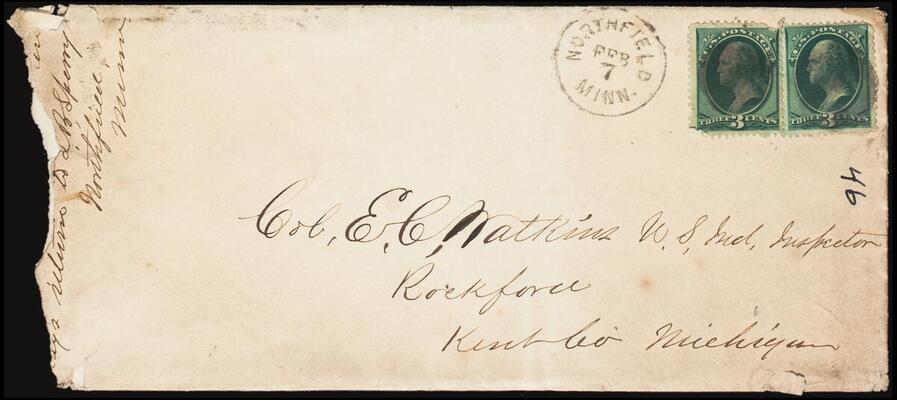 NORTHFIELD
FEB
7
MINN.
U.S. POSTAGE
THREE 3 CENTS
U.S. POSTAGE
THREE 3 CENTS
46
Col, E. C, Watkins U, S, Ind, Inspector
Rockford
Kent Co Michigan
return to L B Sperry
Northfield,
Minn